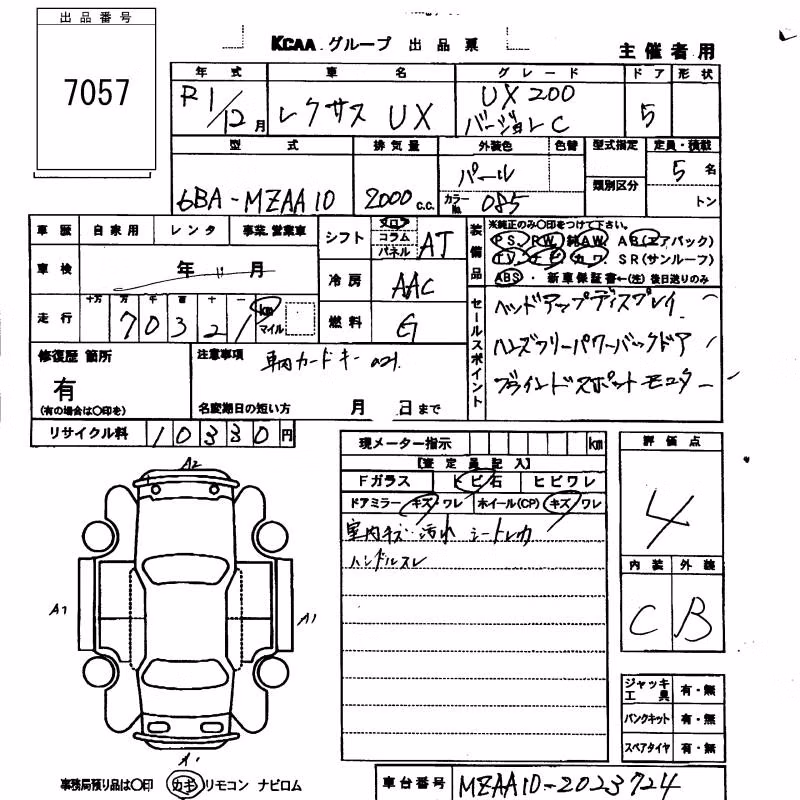 出品番号
7057
KCAA グループ 出品票
主催者用
年式 車名 グレード ドア 形状
R1/12月 レクサス UX UX200 バージョンC 5
型式 排気量 外装色 色替 型式指定 定員・積載
6BA-MZAA10 2000c.c. パール 5名
カラーNo. 085 類別区分 トン
車歴 自家用 レンタ 事業.営業車
シフト フロア コラム パネル AT
装備品
※純正のみ〇印をつけて下さい。
P.S. P.W. 純A.W. A B (エアバック)
T.V. ナビ カワ S R (サンルーフ)
ABS・新車保証書←(注) 後日送りのみ
車検 年 11 月
冷房 AAC
走行 十万 万 千 百 十 一
70321 km マイル
燃料 G
セールスポイント
ヘッドアップディスプレイ
ハンズフリーパワーバックドア
ブラインドスポットモニター
修復歴 箇所
有
(有の場合は〇印を)
注意事項
車内カードキー
名変期日の短い方 月 日まで
リサイクル料 10330円
現メーター指示 km
【査定員記入】
Fガラス トビ石 ヒビワレ
ドアミラー キズ・ワレ ホイール(CP) キズ・ワレ
室内キズ・汚れ シート
ハンドルスレ
評価点
4
内装 外装
C B
A2
A1
A1
A1
ジャッキ工具 有・無
パンクキット 有・無
スペアタイヤ 有・無
事務局預り品は〇印 カギ リモコン ナビロム
車台番号 MZAA10-2023724